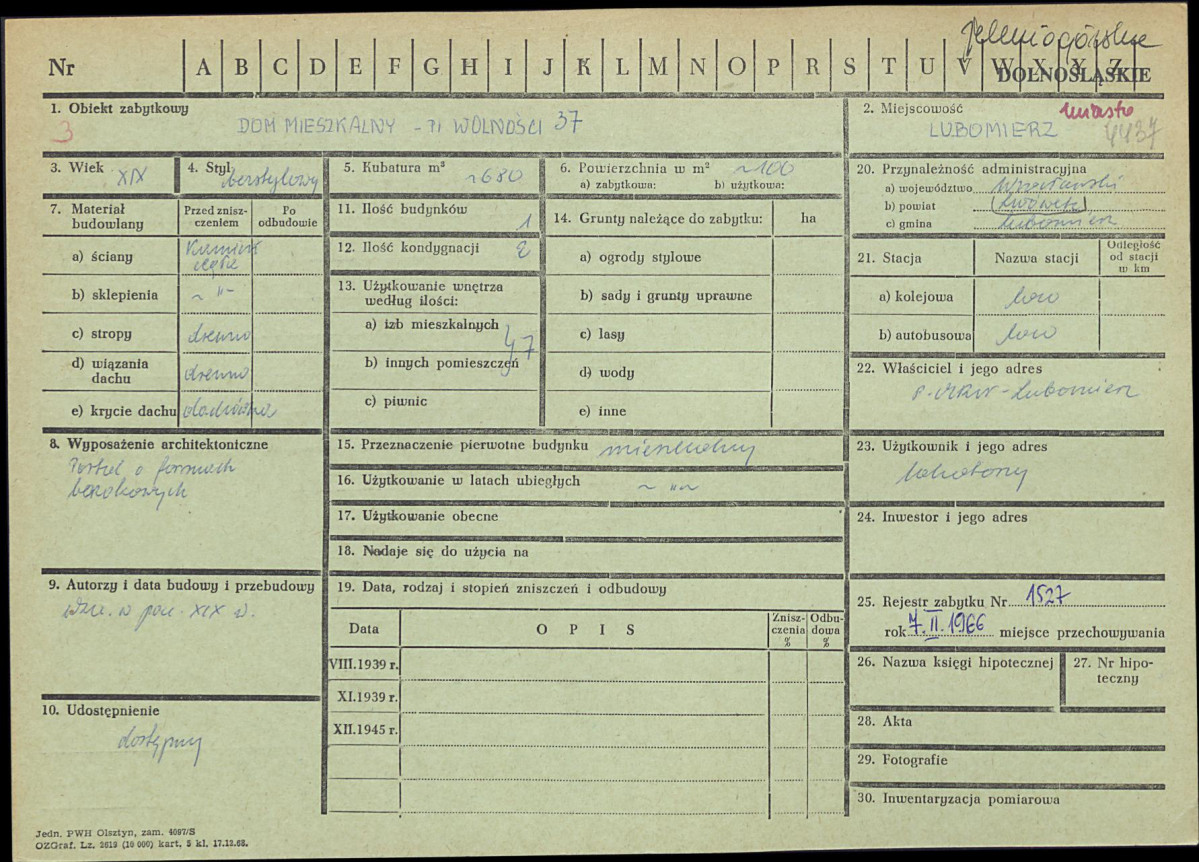 Jeleniogórskie
Nr A B C D E F G H I J K L M N O P R S T U V W X Y Z
DOLNOŚLĄSKIE
1. Obiekt zabytkowy
3
DOM MIESZKALNY - Pl WOLNOŚCI 37
2. Miejscowość
miasto
LUBOMIERZ
4437
3. Wiek XIX
4. Styl bezstylowy
5. Kubatura m³ ~680
6. Powierzchnia w m² ~100
a) zabytkowa: b) użytkowa:
7. Materiał budowlany
Przed zniszczeniem
Po odbudowie
a) ściany
Kamień
cegła
b) sklepienia ~ "-
c) stropy drewno
d) wiązania dachu drewno
e) krycie dachu dachówka
8. Wyposażenie architektoniczne
Portal o formach
barokowych
9. Autorzy i data budowy i przebudowy
wzn. w poł. XIX w.
10. Udostępnienie
dostępny
11. Ilość budynków 1
12. Ilość kondygnacji 2
13. Użytkowanie wnętrza
według ilości:
a) izb mieszkalnych
b) innych pomieszczeń
c) piwnic
14. Grunty należące do zabytku: ha
a) ogrody stylowe
b) sady i grunty uprawne
c) lasy
d) wody
e) inne
15. Przeznaczenie pierwotne budynku mieszkalny
16. Użytkowanie w latach ubiegłych ~ "~
17. Użytkowanie obecne
18. Nadaje się do użycia na
19. Data, rodzaj i stopień zniszczeń i odbudowy
Data OPIS Zniszczenia % Odbudowa %
VIII.1939 r.
XI.1939 r.
XII.1945 r.
20. Przynależność administracyjna
a) województwo Wrocławski
b) powiat (Lwówek)
c) gmina Lubomierz
21. Stacja Nazwa stacji Odległość od stacji w km
a) kolejowa loco
b) autobusowa loco
22. Właściciel i jego adres
Lubomierz
23. Użytkownik i jego adres
lokatorzy
24. Inwestor i jego adres
25. Rejestr zabytku Nr 1527
rok 7.II.1966 miejsce przechowywania
26. Nazwa księgi hipotecznej
27. Nr hipoteczny
28. Akta
29. Fotografie
30. Inwentaryzacja pomiarowa
Jedn. PWH Olsztyn, zam. 4097/S
OZGraf. Lz. 2619 (10 000) kart. 5 kl. 17.12.68.